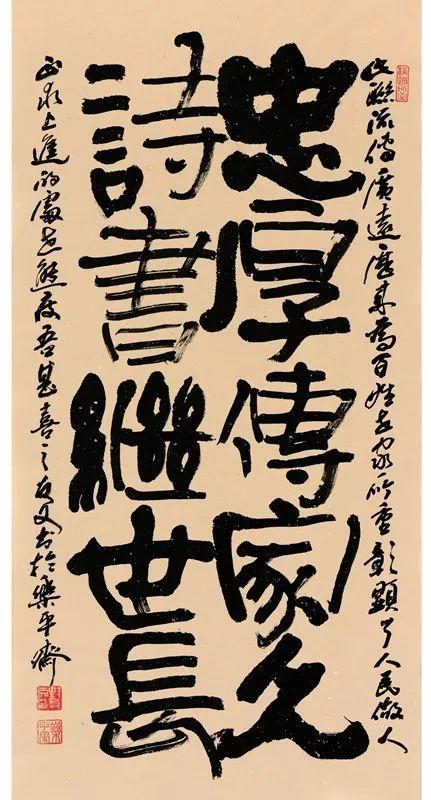 此聯流傳廣遠歷來為百姓家所重彰顯了人民做人
忠厚傳家久
詩書繼世長
正求上進的處世態度吾甚喜之友書於樂平齋